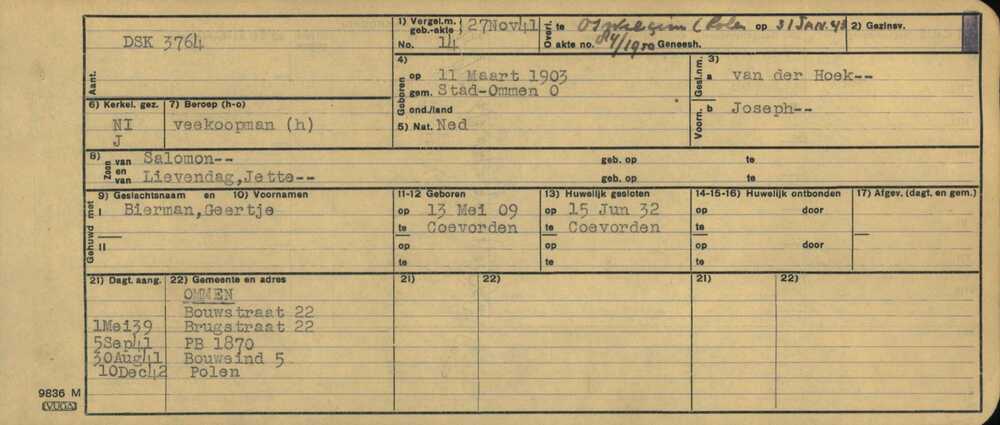 DSK 3764
Aant.
1) Vergel.m. geb.-akte 27Nov41
No. 14
Overl. te (Polen op 31 JAN.43
akte no. 84/1950 Geneesh.
2) Gezinsv.
4) Geboren
op 11 Maart 1903
gem. Stad-Ommen O
ond./land
5) Nat. Ned
3)
Gesl.nm. a van der Hoek--
Voorn. b Joseph--
6) Kerkel. gez. 7) Beroep (h-o)
NI veekoopman (h)
J
8) Zoon van Salomon-- geb. op te
en van Lievendag,Jette-- geb. op te
9) Geslachtsnaam en 10) Voornamen 11-12 Geboren 13) Huwelijk gesloten 14-15-16) Huwelijk ontbonden 17) Afgev. (dagt. en gem.)
Gehuwd met
I Bierman,Geertje op 13 Mei 09 op 15 Jun 32 op door
te Coevorden te Coevorden te
II op op op door
te te te
21) Dagt. aang. 22) Gemeente en adres 21) 22) 21) 22)
OMMEN
Bouwstraat 22
1Mei39 Brugstraat 22
5Sep41 PB 1870
30Aug41 Bouweind 5
10Dec42 Polen
9836 M
VUGA